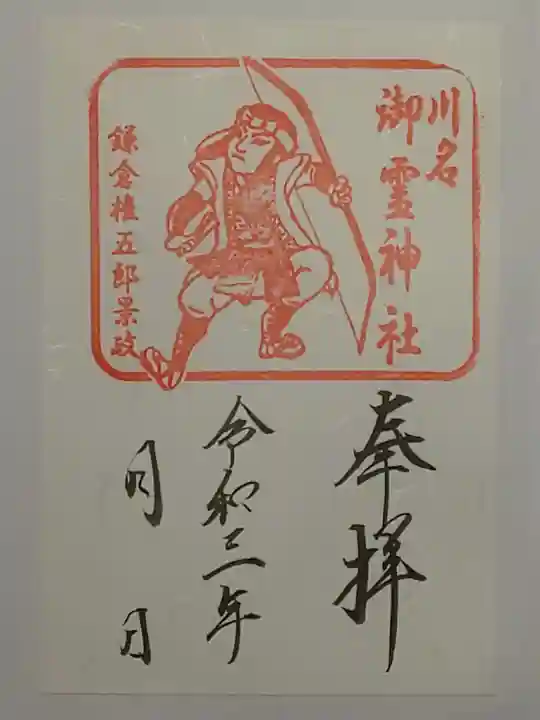 川名
御霊神社
鎌倉権五郎景政
奉拝
令和三年
月 日